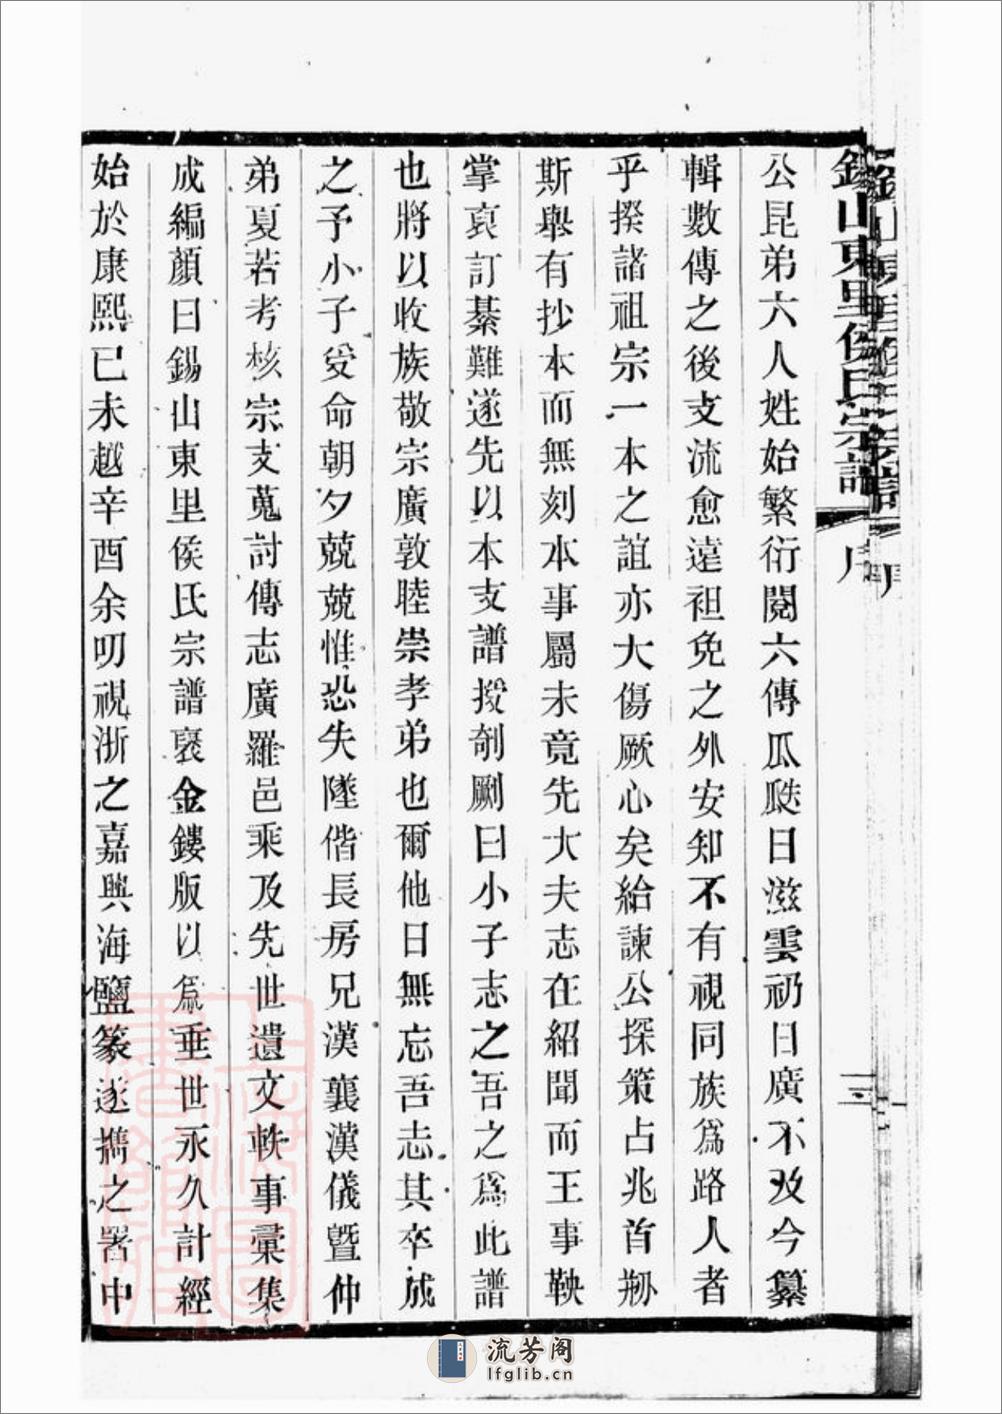 錫山東里侯氏宗譜
序
三
公昆弟六人姓始繁衍閱六傳瓜瓞日滋雲礽日廣不及今纂
輯數傳之後支流愈遠袒免之外安知不有視同族爲路人者
乎揆諸祖宗一本之誼亦大傷厥心矣給諫公探策占兆首刱
斯舉有抄本而無刻本事屬未竟先大夫志在紹聞而王事鞅
掌裒訂綦難遂先以本支譜授剞劂曰小子志之吾之爲此譜
也將以收族敬宗廣敦睦崇孝弟也爾他日無忘吾志其卒成
之予小子受命朝夕兢兢惟恐失墜偕長房兄漢襄漢儀暨仲
弟夏若考核宗支蒐討傳志廣羅邑乘及先世遺文軼事彙集
成編顏曰錫山東里侯氏宗譜裒金鏤版以爲垂世永久計經
始於康熙已未越辛酉余叨視浙之嘉興海鹽篆遂攜之署中
流芳阁
lfglib.cn